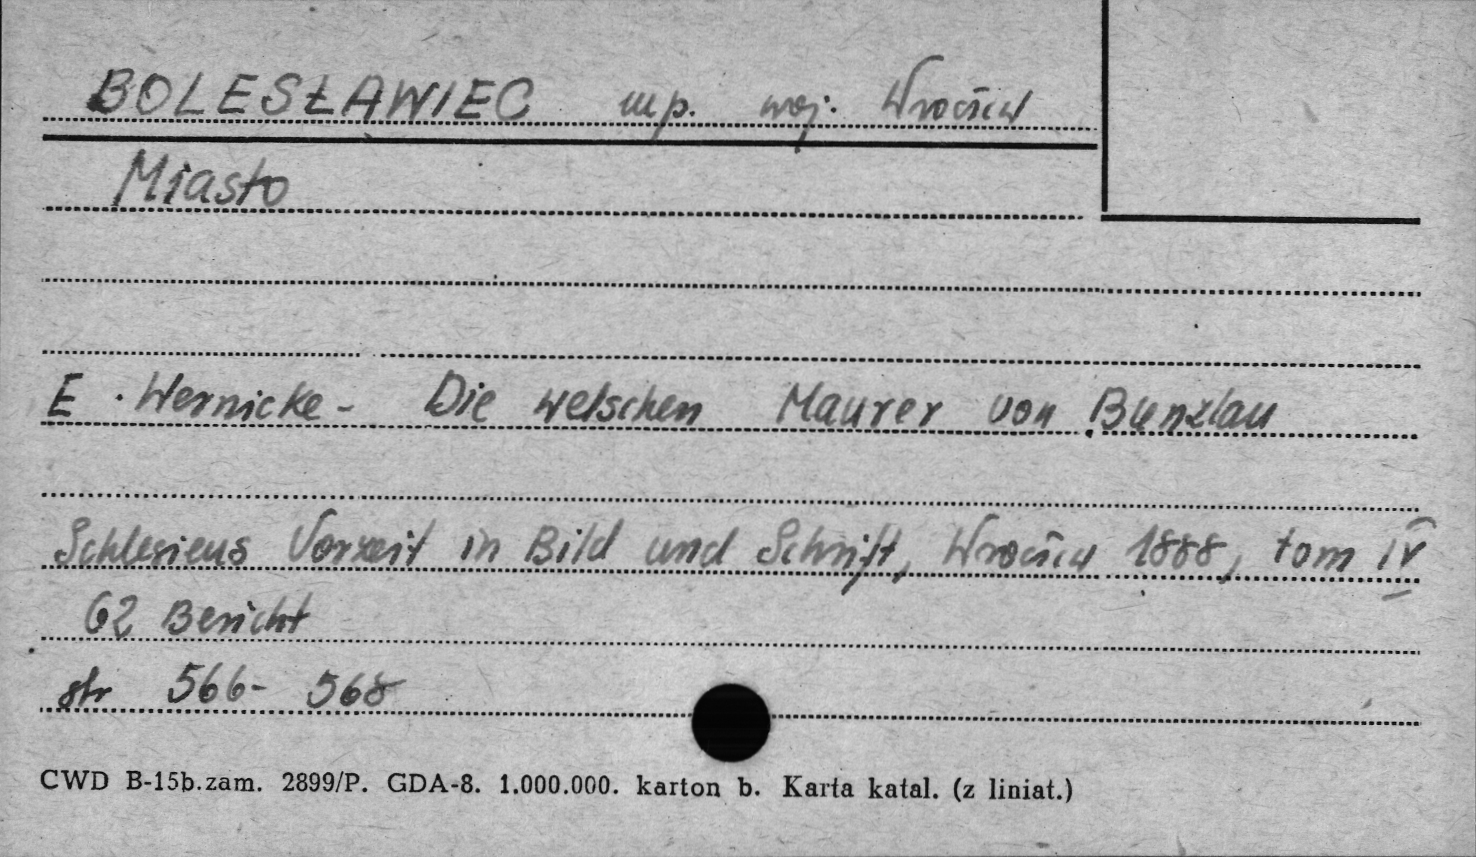 BOLESŁAWIEC mp. woj. Wrocław
Miasto
E. Wernicke - Die welschen Maurer von Bunzlau
Schlesiens Vorzeit in Bild und Schrift, Wrocław 1888, tom IV
62 Bericht
str 566-568
CWD B-15b.zam. 2899/P. GDA-8. 1.000.000. karton b. Karta katal. (z liniat.)